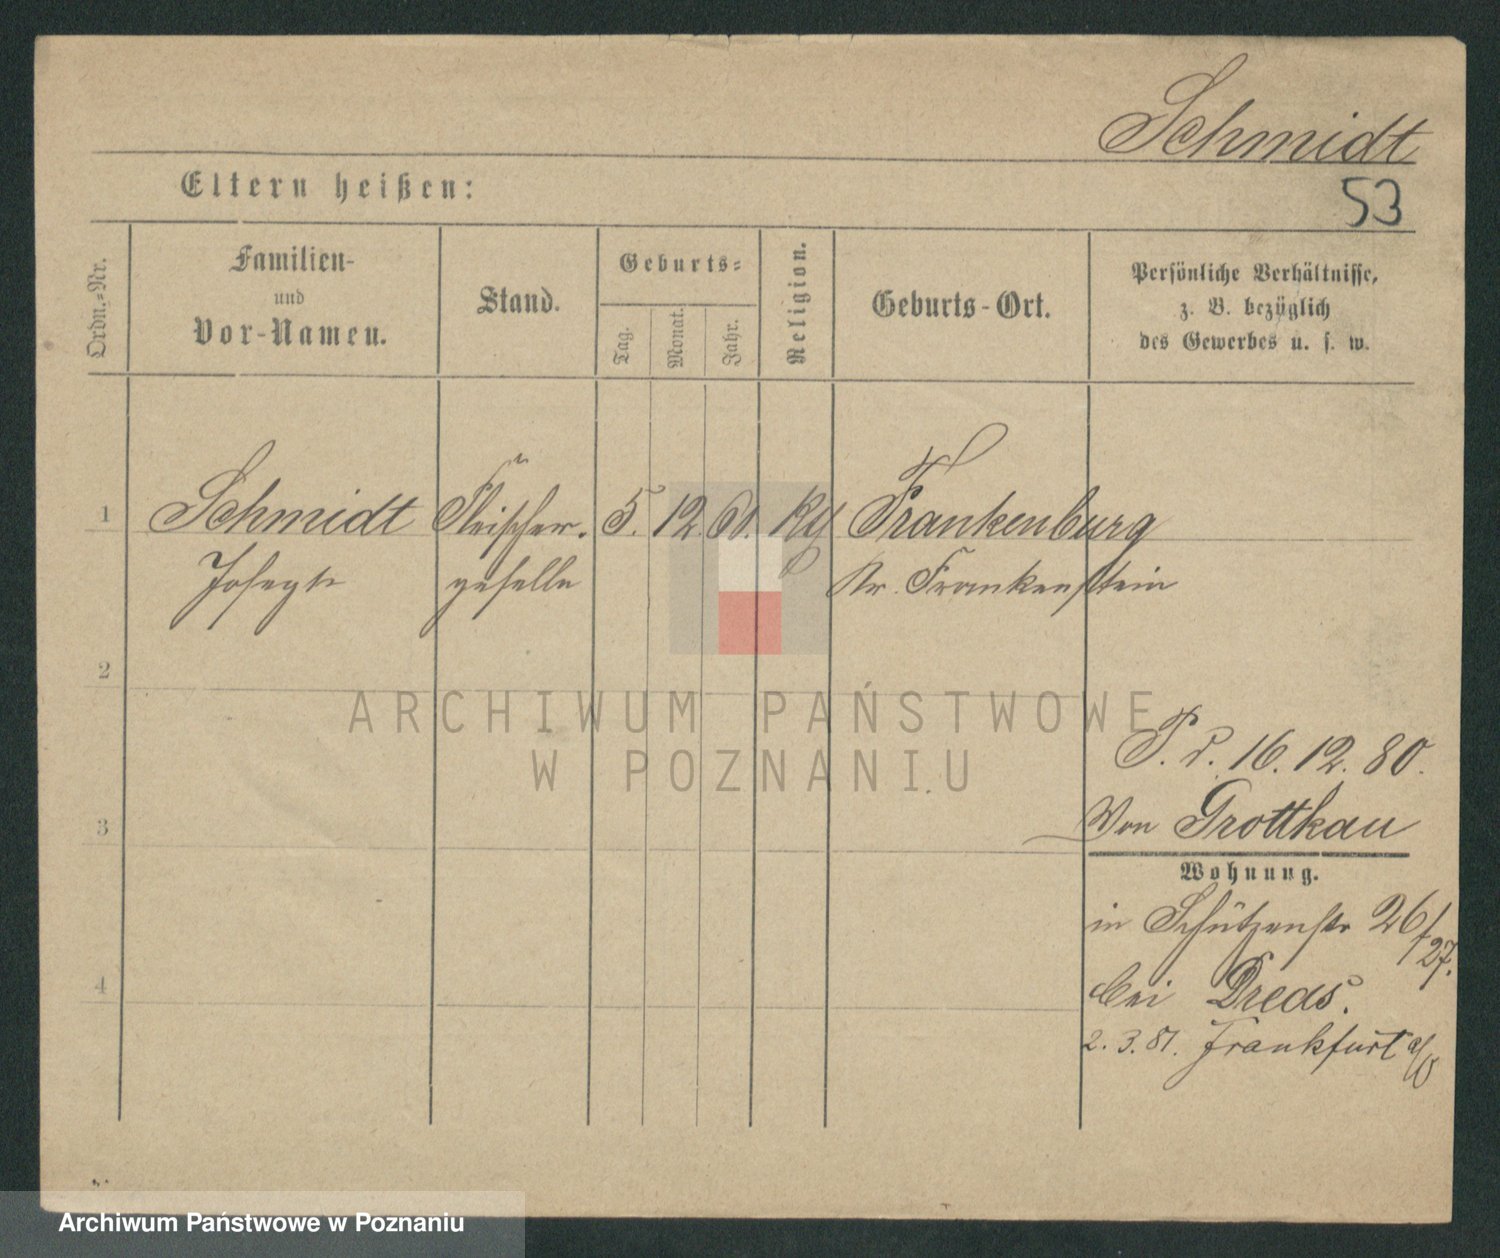 Schmidt
53
Eltern heißen:
Ordn.-Nr.
Familien-
und
Vor-Namen.
Stand.
Geburts-
Tag.
Monat.
Jahr.
Religion.
Geburts-Ort.
Persönliche Verhältnisse,
z. B. bezüglich
des Gewerbes u. s. w.
1
Schmidt Fleischer- 5. 12. 60. Frankenburg
Joseph geselle Kr. Frankenstein
2
ARCHIWUM PAŃSTWOWE
W POZNANIU
16. 12. 80.
3
Von Grottkau
Wohnung.
in Schützenstr 26/27.
4
bei Dreds.
2. 3. 81. Frankfurt a/O
Archiwum Państwowe w Poznaniu